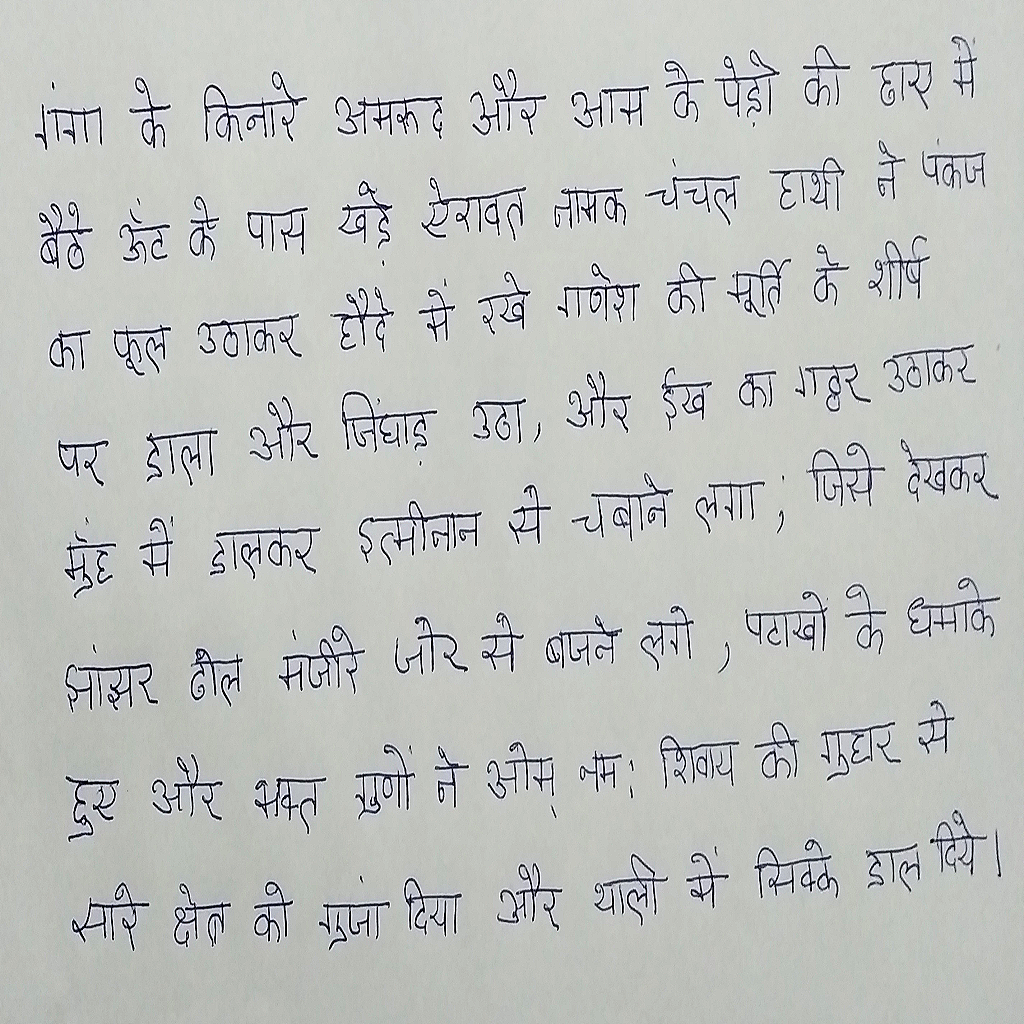 गंगा के किनारे अमरूद और आम के पेड़ों की ढार में
बैठे ऊँट के पास खड़े ऐरावत नामक चंचल हाथी ने पंकज
का फूल उठाकर हौदे में रखे गणेश की मूर्ति के शीर्ष
पर डाला और जिंघाड़ उठा, और ईख का गठ्ठर उठाकर
मुँह में डालकर इत्मीनान से चबाने लगा; जिसे देखकर
झांझर ढोल मंजीरे जोर से बजने लगे, पटाखों के धमाके
हुए और भक्त गुणों ने ओम् नमः शिवाय की गुहार से
सारे क्षेत्र को गुंजा दिया और थाली में सिक्के डाल दिये।